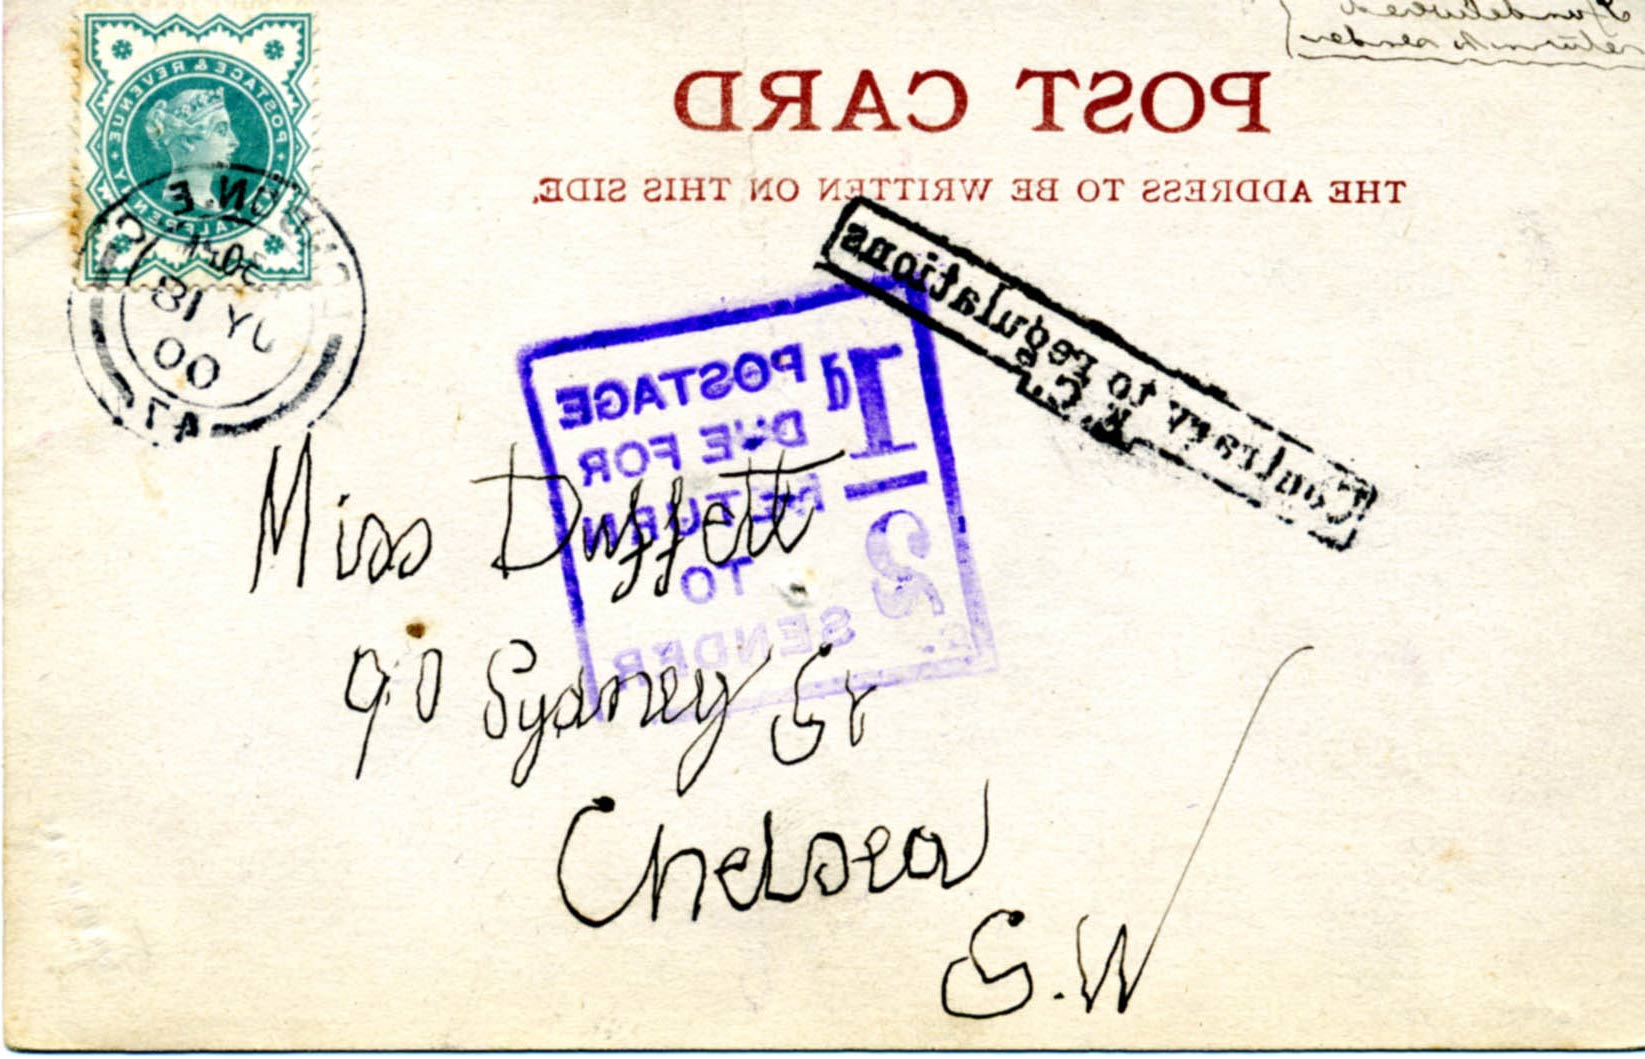 If undelivered
return to sender
POST CARD
THE ADDRESS TO BE WRITTEN ON THIS SIDE.
POSTAGE & REVENUE
HALFPENNY
JY 18
00
Contrary to regulations
1d
2
POSTAGE
DUE FOR
RETURN
TO
SENDER
Miss Duffett
90 Sydney St
Chelsea
S.W